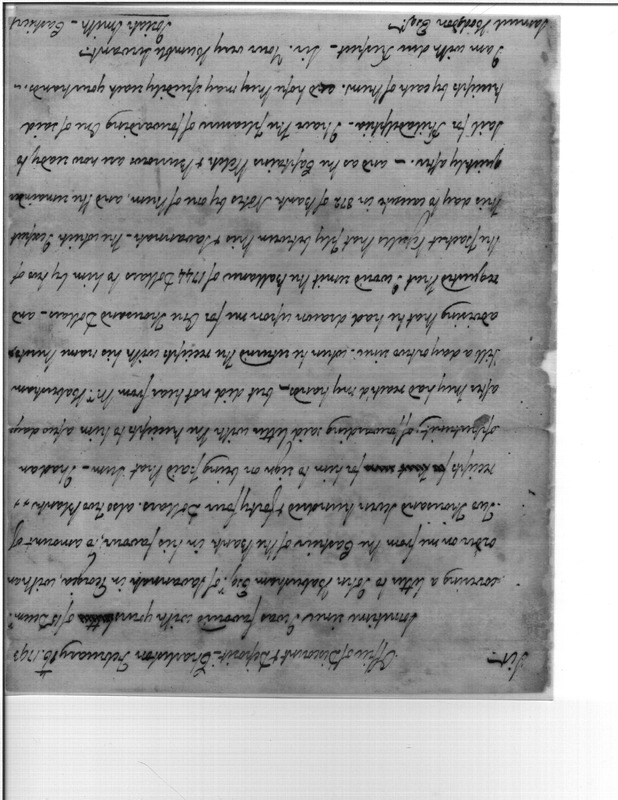 Office of Discount & Deposit. Charleston February 16. 1793
Sir
Sometime since I was favored with yours of 15 Decem.r
covering a letter to John Habersham Esq.r of Savannah in Georgia, with an
order on me from the Cashier of the Bank in his favour, to amount of
Two Thousand seven hundred & forty four Dollars. also two blank
receipts for him to sign on being paid that Sum. I had an
opportunity of forwarding said letter with the receipts to him a few days
after they had reach'd my hands. but did not hear from Mr. Habersham
till a day or two since. when he returnd the receipts with his name
advising that he had drawn upon me for One Thousand Dollars. and
requested that I would remit the ballance of 1744 Dollars to him by two of
the Packet Vessels that ply between this & Savannah. the which I expect
this day to execute in 872 of Bank Notes by one of them, and the remainder
quickly after. and as the Captains & are now ready to
sail for Philadelphia. I have the pleasure of forwarding One of said
receipts by each of them. and hope they may speedily reach your hands.
I am with due Respect. Sir. Your very Humble Servant.
Josiah Smith. Cashier
Samuel Hodgdon Esq.r